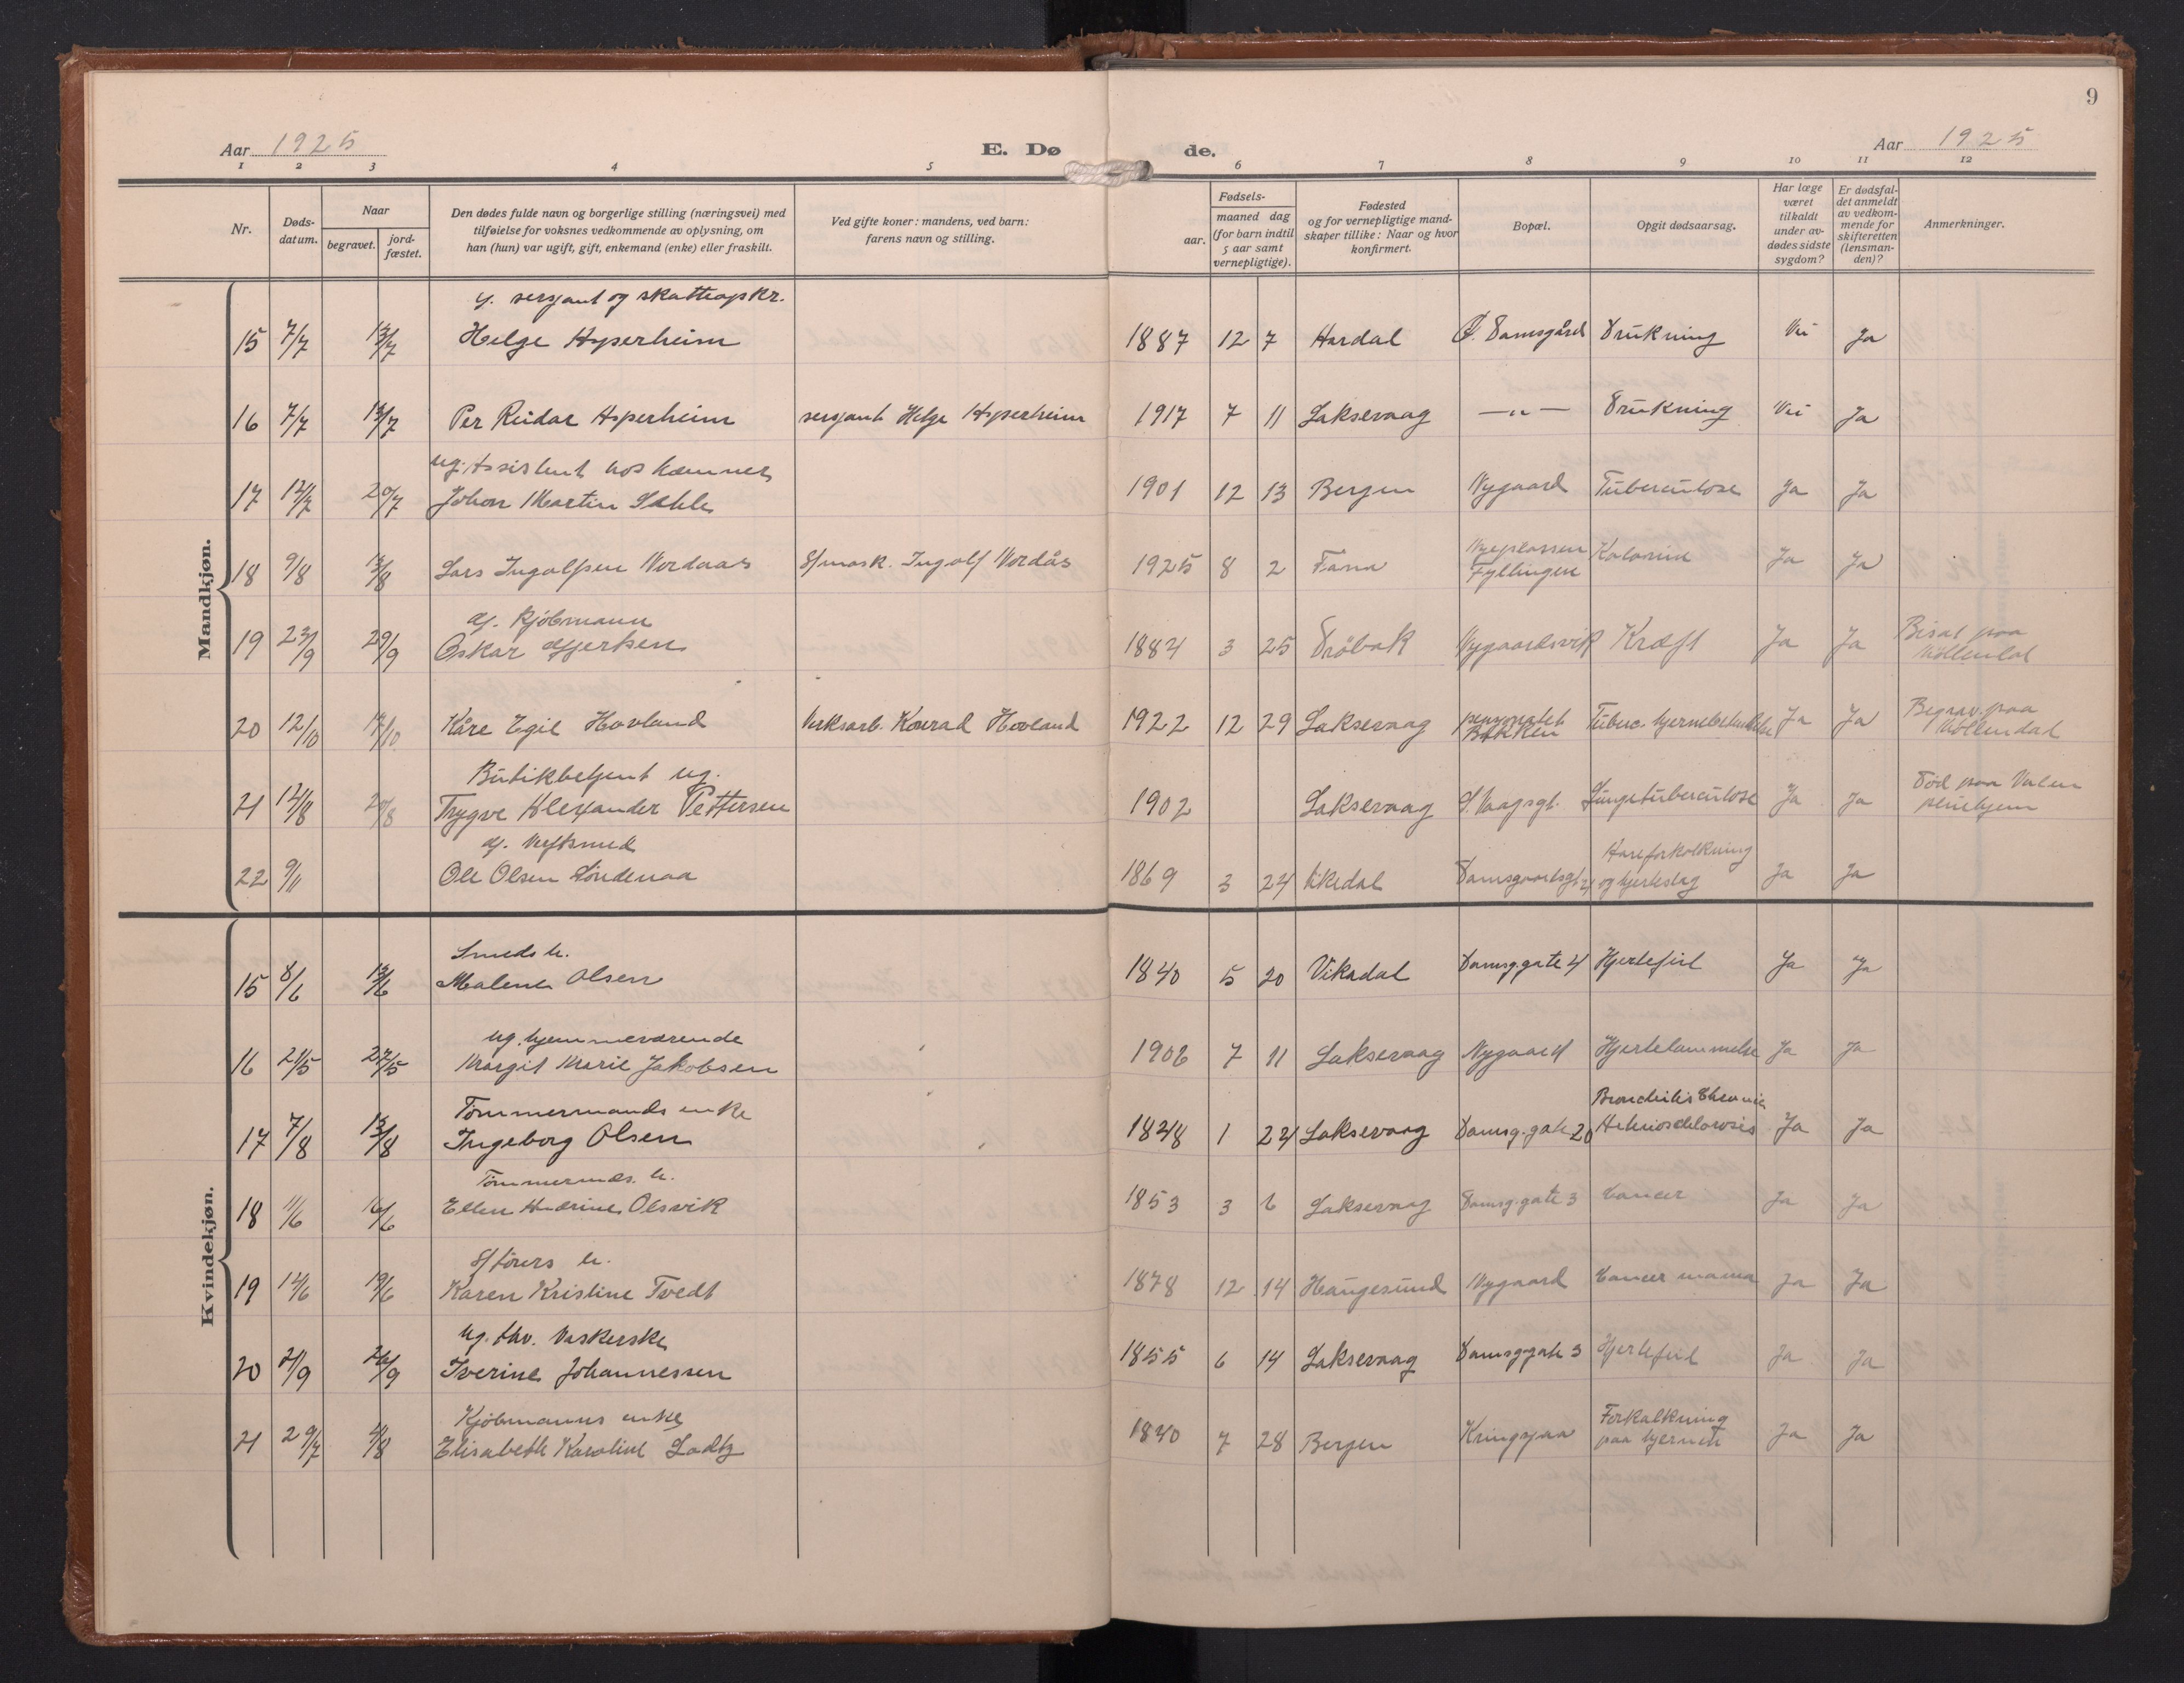 9
Aar 1925
E. Dø de.
Aar 1925
1 2 3 4 5 6 7 8 9 10 11 12
Nr.
Døds-
datum.
Naar
begravet.
jord-
fæstet.
Den dødes fulde navn og borgerlige stilling (næringsvei) med
tilføielse for voksnes vedkommende av oplysning, om
han (hun) var ugift, gift, enkemand (enke) eller fraskilt.
Ved gifte koner: mandens, ved barn:
farens navn og stilling.
Fødsels-
aar.
maaned dag
(for barn indtil
5 aar samt
vernepligtige).
Fødested
og for vernepligtige mand-
skaper tillike: Naar og hvor
konfirmert.
Bopæl.
Opgit dødsaarsag.
Har læge
været
tilkaldt
under av-
dødes sidste
sygdom?
Er dødsfal-
det anmeldt
av vedkom-
mende for
skifteretten
(lensman-
den)?
Anmerkninger.
Mandkjøn.
g. sersjant og skatteopskr.
15 7/7 13/7 Helge Asperheim 1887 12 7 Aardal Ø. Damsgård Drukning Nei Ja
16 7/7 13/7 Per Reidar Asperheim sersjant Helge Asperheim 1917 7 11 Laksevaag —"— Drukning Nei Ja
ug. Assistent hos kæmner
17 12/7 20/7 Johan Martin Dahle 1901 12 13 Bergen Nygaard Tuberculose Ja Ja
18 9/8 13/8 Lars Ingolfsen Nordaas S/mask. Ingolf Nordås 1925 8 2 Fana Fyllingen Ja Ja
gf. Kjøbmann
19 23/9 29/9 Oskar Gjertsen 1884 3 25 Drøbak Nygaardsvik Kræft Ja Ja Bisat paa
Møllendal
20 12/10 17/10 Kåre Egil Hovland Verksarb. Konrad Hovland 1922 12 29 Laksevaag Ja Ja Begrav. paa
Bakken Tuberc. hjernebetendelse Møllendal
Butikbetjent ug.
21 12/8 20/8 Trygve Alexander Pettersen 1902 Laksevaag S. Vaagsgt. Lungetuberculose Ja Ja Død paa Valen
pleiehjem
gf. Verftsmed Aareforkalkning
22 9/11 Ole Olsen Söndenaa 1869 3 24 Vikedal Damsgaardsgt 4 og hjerteslag Ja Ja
Kvindekjøn.
Smeds h.
15 8/6 13/6 Malene Olsen 1840 5 20 Vikedal Damsg.gate 4 Hjertefeil Ja Ja
ug. hjemmeværende
16 21/5 27/5 Margit Marie Jakobsen 1906 7 11 Laksevaag Nygaard Hjertelammelse Ja Ja
Tömmermands enke Bronchitis Chronic
17 7/8 13/8 Ingeborg Olsen 1848 1 24 Laksevaag Damsg.gate 20 Ja Ja
Tömmermds. h.
18 11/6 16/6 Ellen Olsvik 1853 3 6 Laksevaag Damsg.gate 3 Cancer Ja Ja
S/förers h.
19 12/6 19/6 Karen Kristine Tvedt 1878 12 14 Haugesund Nygaard Cancer mama Ja Ja
ug. fhv. Vaskerske
20 21/9 26/9 Iverine Johannessen 1855 6 14 Laksevaag Damsg.gate 3 Hjertefeil Ja Ja
Kjöbmanns enke Forkalkning
21 29/7 4/8 Elisabeth Karoline Ladtz 1840 7 28 Bergen Kringsjaa paa hjernen Ja Ja